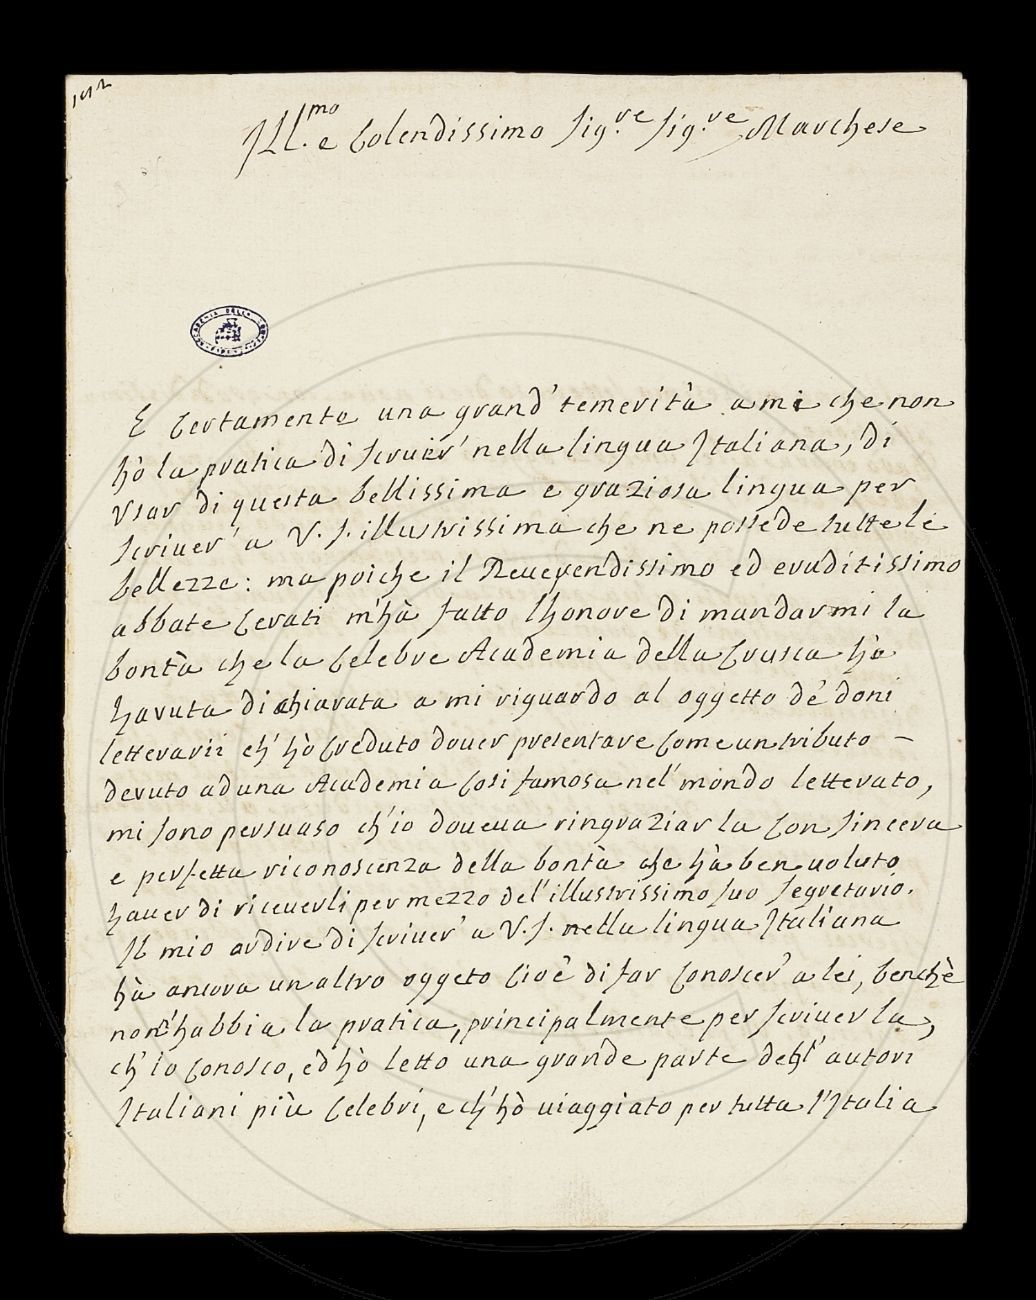 Ill.mo e Colendissimo Sig.re Sig.re Marchese
ACCADEMIA DELLA
E Certamente una grand' temerità a mi che non
hò la pratica di scriuer' nella lingua Italiana, di
Usar di questa bellissima e graziosa lingua per
Scriuer' a V. S. illustrissima che ne possede tutte le
bellezze: ma poiche il Reuerendissimo ed eruditissimo
abbate Cerati m'hà fatto l'honore di mandarmi la
bontà che la Celebre Academia della Crusca hà
havuta dichiarata a mi riguardo al oggetto de' doni
letterarii ch' hò Creduto douer presentare Come un tributo –
devuto ad una Academia Cosi famosa nel' mondo letterato,
mi sono persuaso ch'io doueua ringraziar la Con sincera
e perfetta riconoscenza della bontà che hà ben uoluto
hauer di riceuerli per mezzo del' illustrissimo suo Segretario.
Il mio ardire di scriuer' a V. S. nella lingua Italiana
hà ancora un altro oggeto Cioè di far Conoscer' a lei, benchè
non n'habbia la pratica, principalmente per scriuer la,
ch' io Conosco, ed hò letto una grande parte degl' autori
Italiani più Celebri, e ch'hò uiaggiato per tutta l'Italia